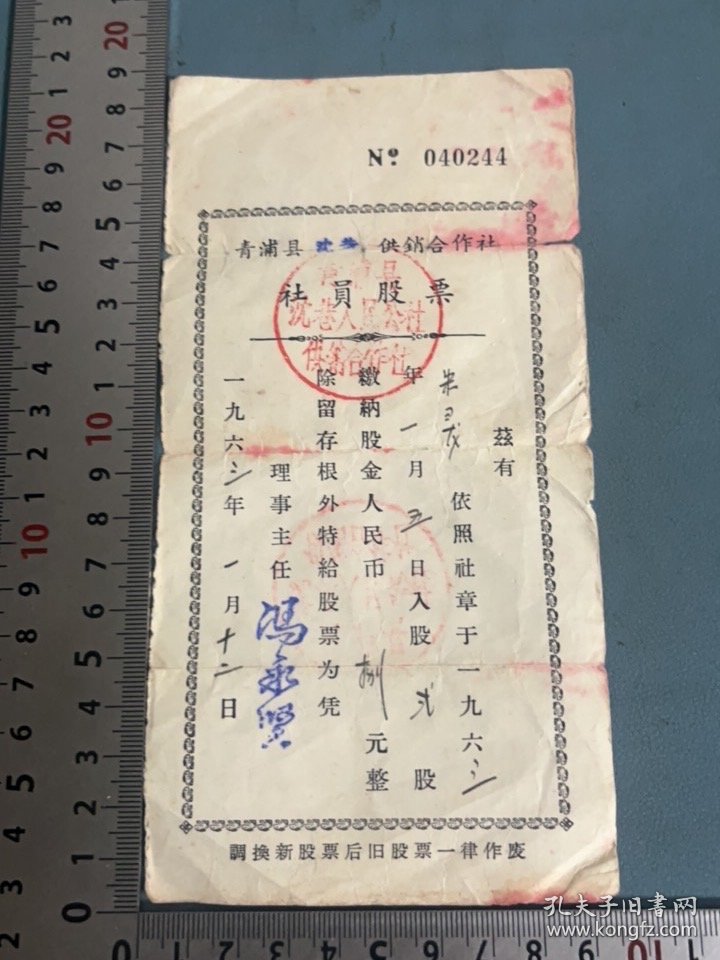 № 040244
青浦县 沈巷 供銷合作社
社員股票
青浦县
沈巷人民公社
供銷合作社
茲有
依照社章于一九六三
年一月五日入股 弍 股
繳納股金人民币 捌 元整
除留存根外特給股票为凭
理事主任 馮永賢
一九六三年一月十二日
調換新股票后旧股票一律作废
孔夫子旧书网
www.kongfz.com